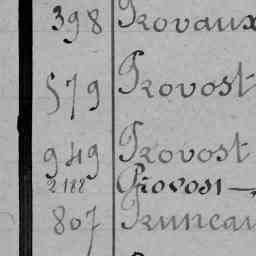 398 Provaux
579 Provost
949 Provost
2188 Provost
807 Pruneau